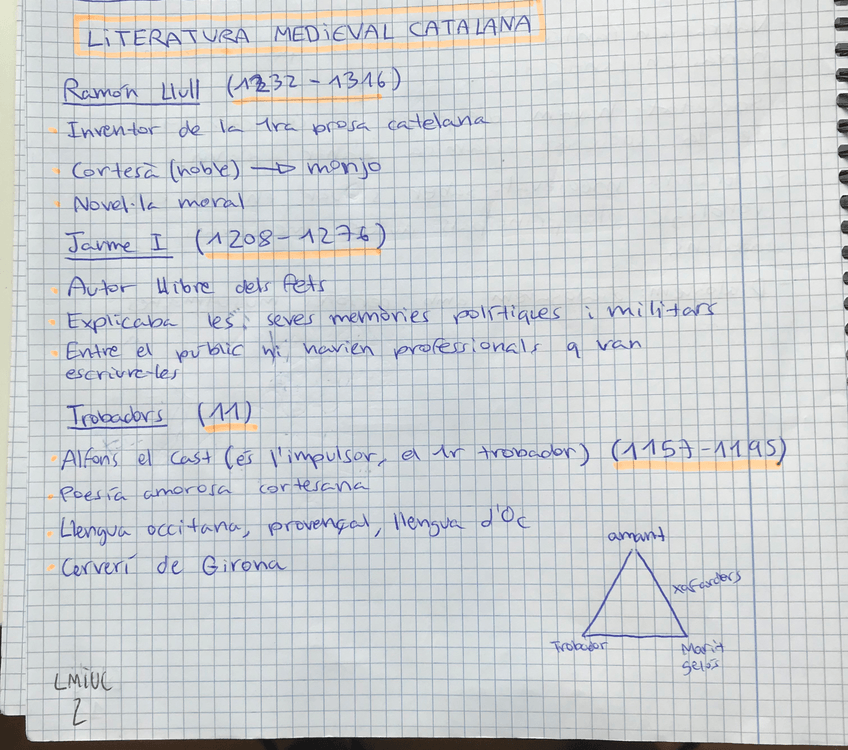 LITERATURA MEDIEVAL CATALANA
Ramón Llull (1232 - 1316)
Inventor de la 1ra prosa catelana
Cortesà (noble) → monjo
Novel·la moral
Jaume I (1208 - 1276)
Autor Llibre dels fets
Explicaba les seves memòries polítiques i militars
Entre el públic hi havien professionals q van
escriure-les
Trobadors (11)
Alfons el Cast (és l'impulsor, el 1r trobador) (1157 - 1195)
Poesía amorosa cortesana
Llengua occitana, provençal, llengua d'Oc
Cerverí de Girona
amant
xafarders
Trobador
Marit
gelós
LMIUC
2